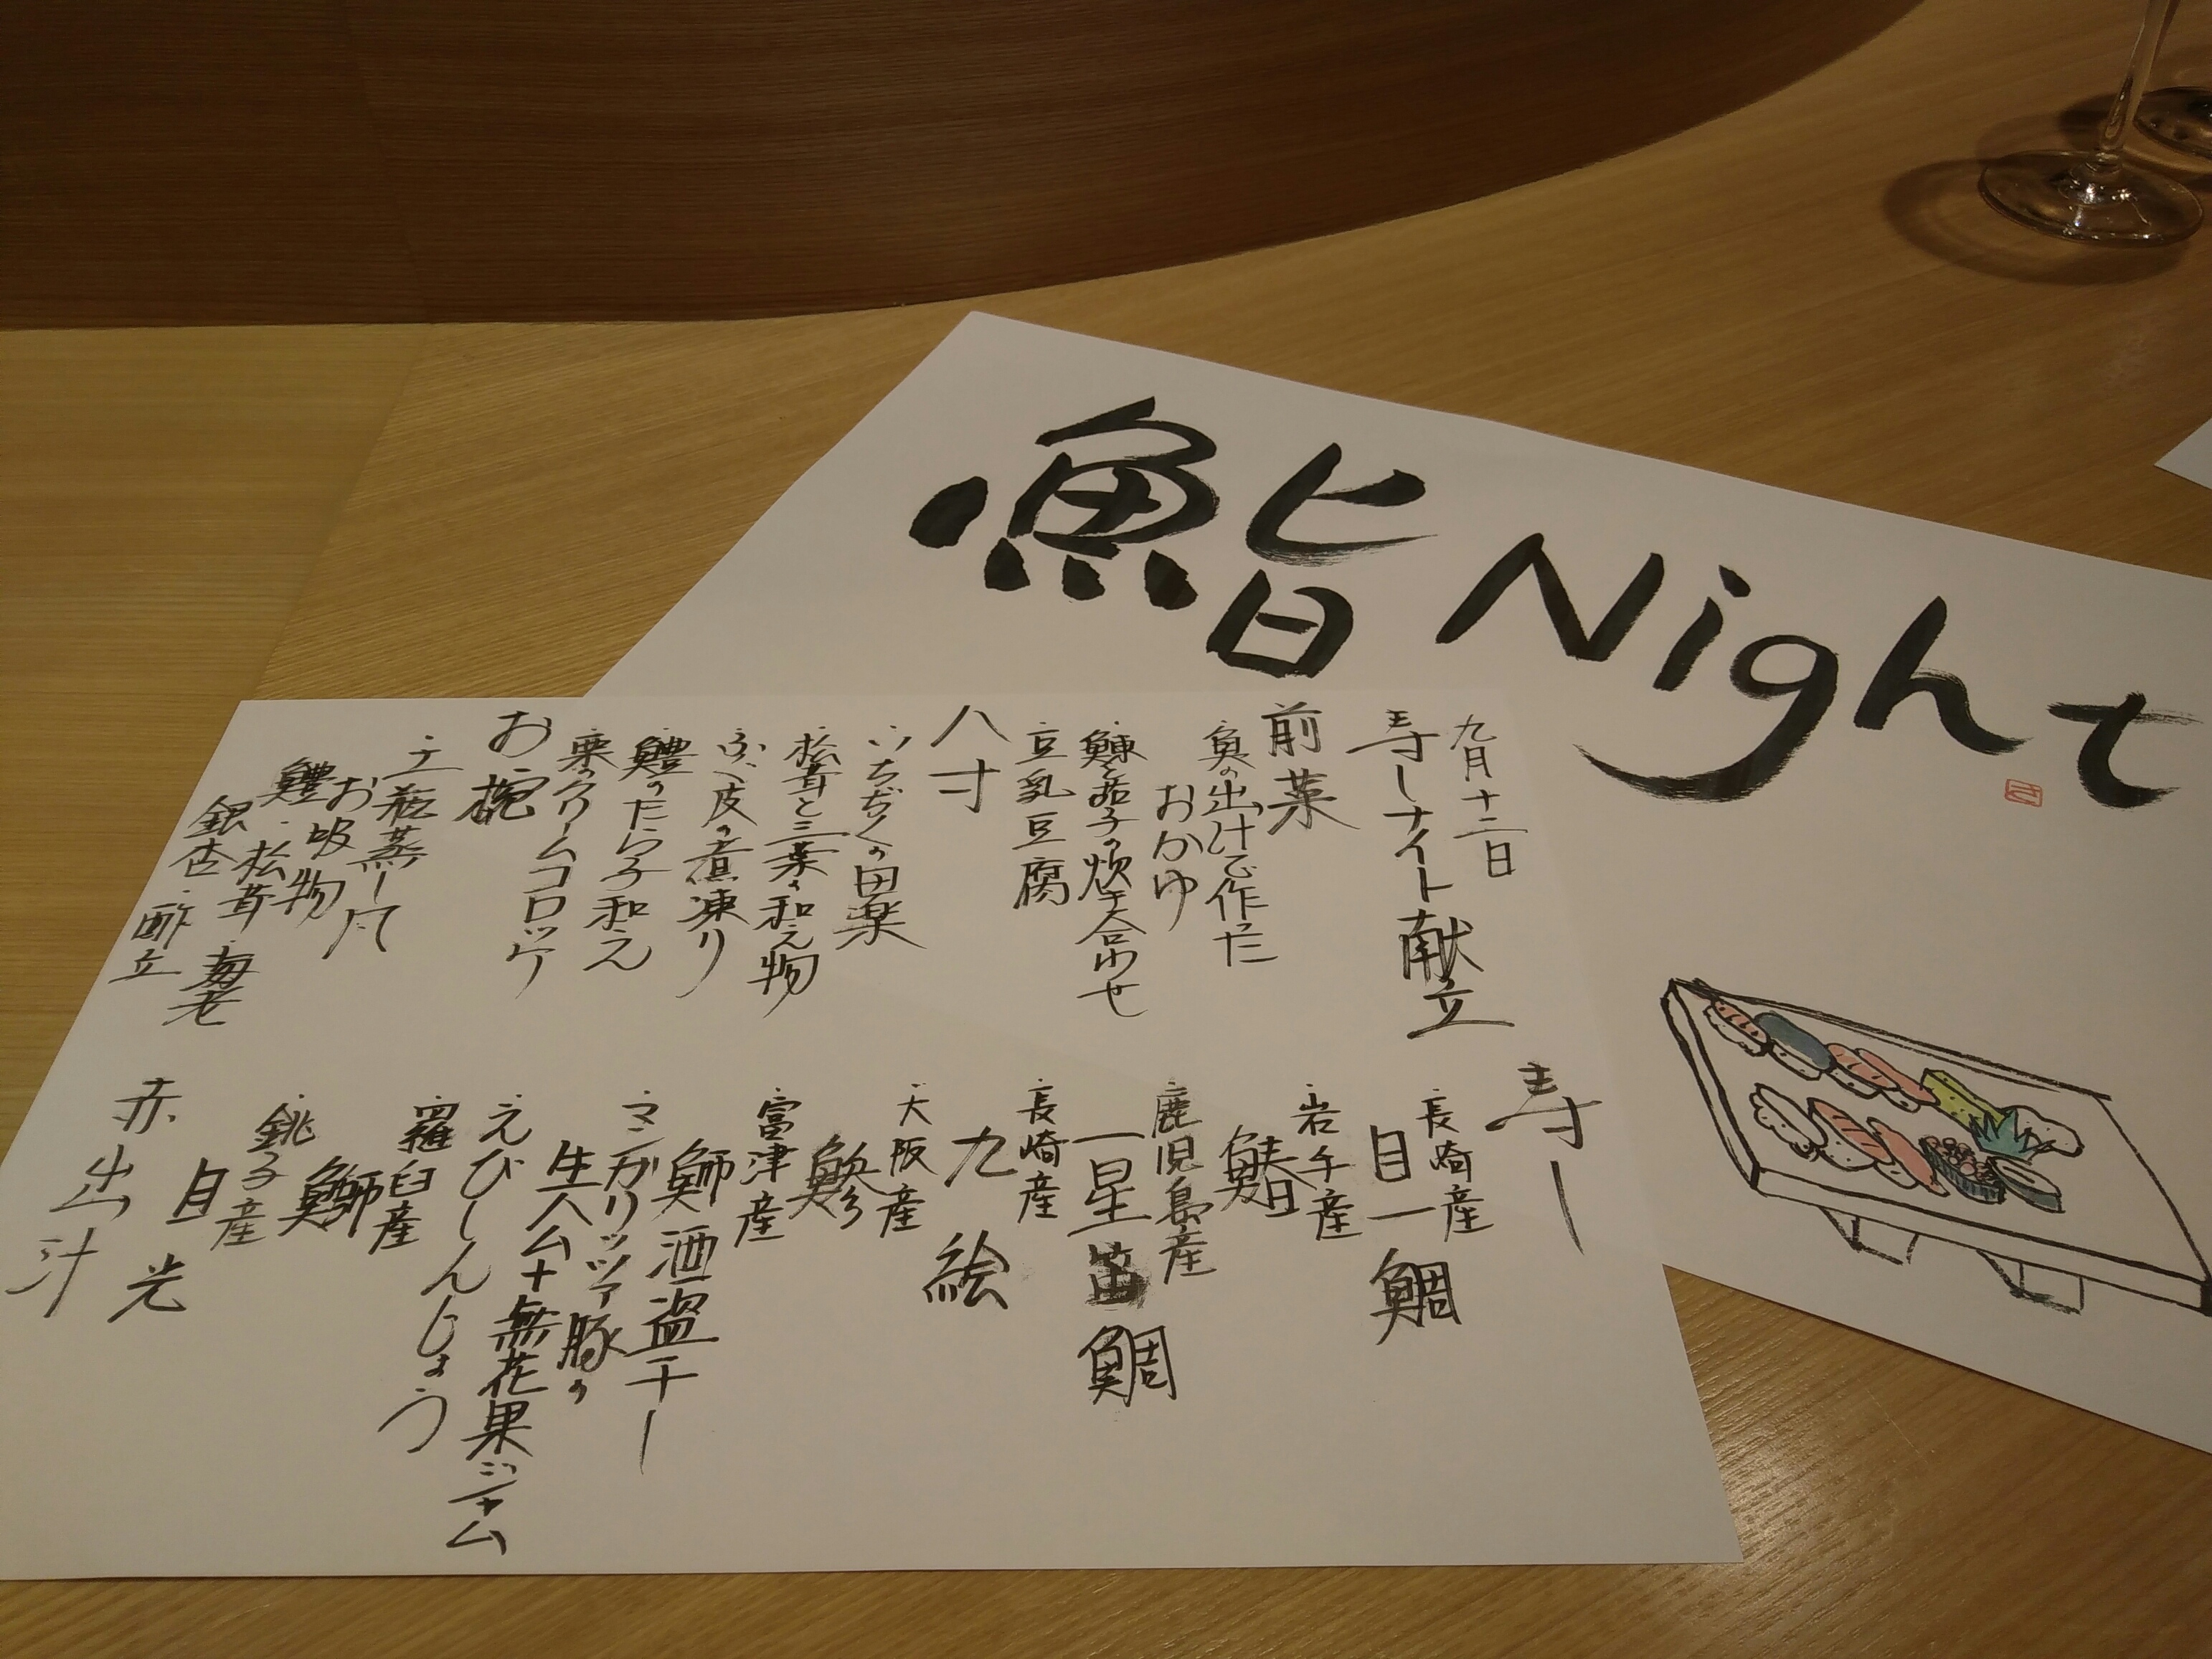 鮨 Night
九月十二日
寿しナイト献立
前菜
・魚の出汁で作った
おかゆ
・鰊と茄子の炊き合わせ
・豆乳豆腐
八寸
・いちぢくの田楽
・松茸と三つ葉の和え物
・ふぐ皮の煮凍り
・鱧のたら子和え
・栗のクリームコロッケ
お椀
・土瓶蒸し風
お吸物
鱧・松茸・海老
銀杏・酢立
寿し
・長崎産
目一鯛
・岩手産
鰆
・鹿児島産
一星笛鯛
・長崎産
九絵
・大阪産
鯵
・富津産
鰤酒盗干し
・マンガリッツァ豚の
生ハム十無花果ジャム
・えびしんじょう
・羅臼産
鰤
・銚子産
目光
赤出汁